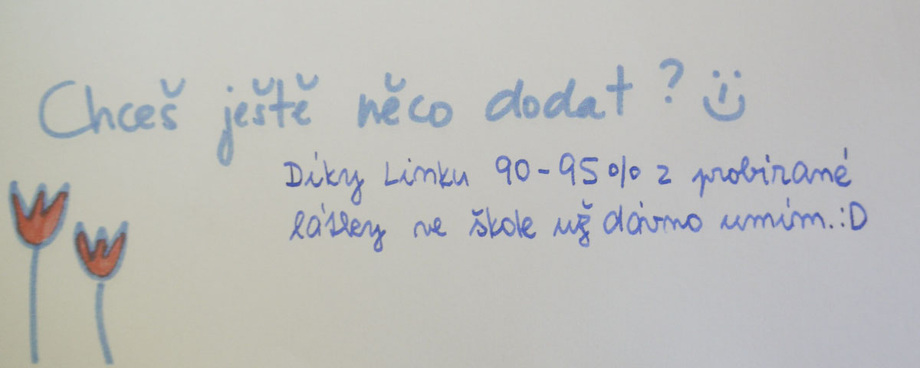 Chceš ještě něco dodat?
Díky Linku 90-95% z probírané
látky ve škole už dávno umím. :D